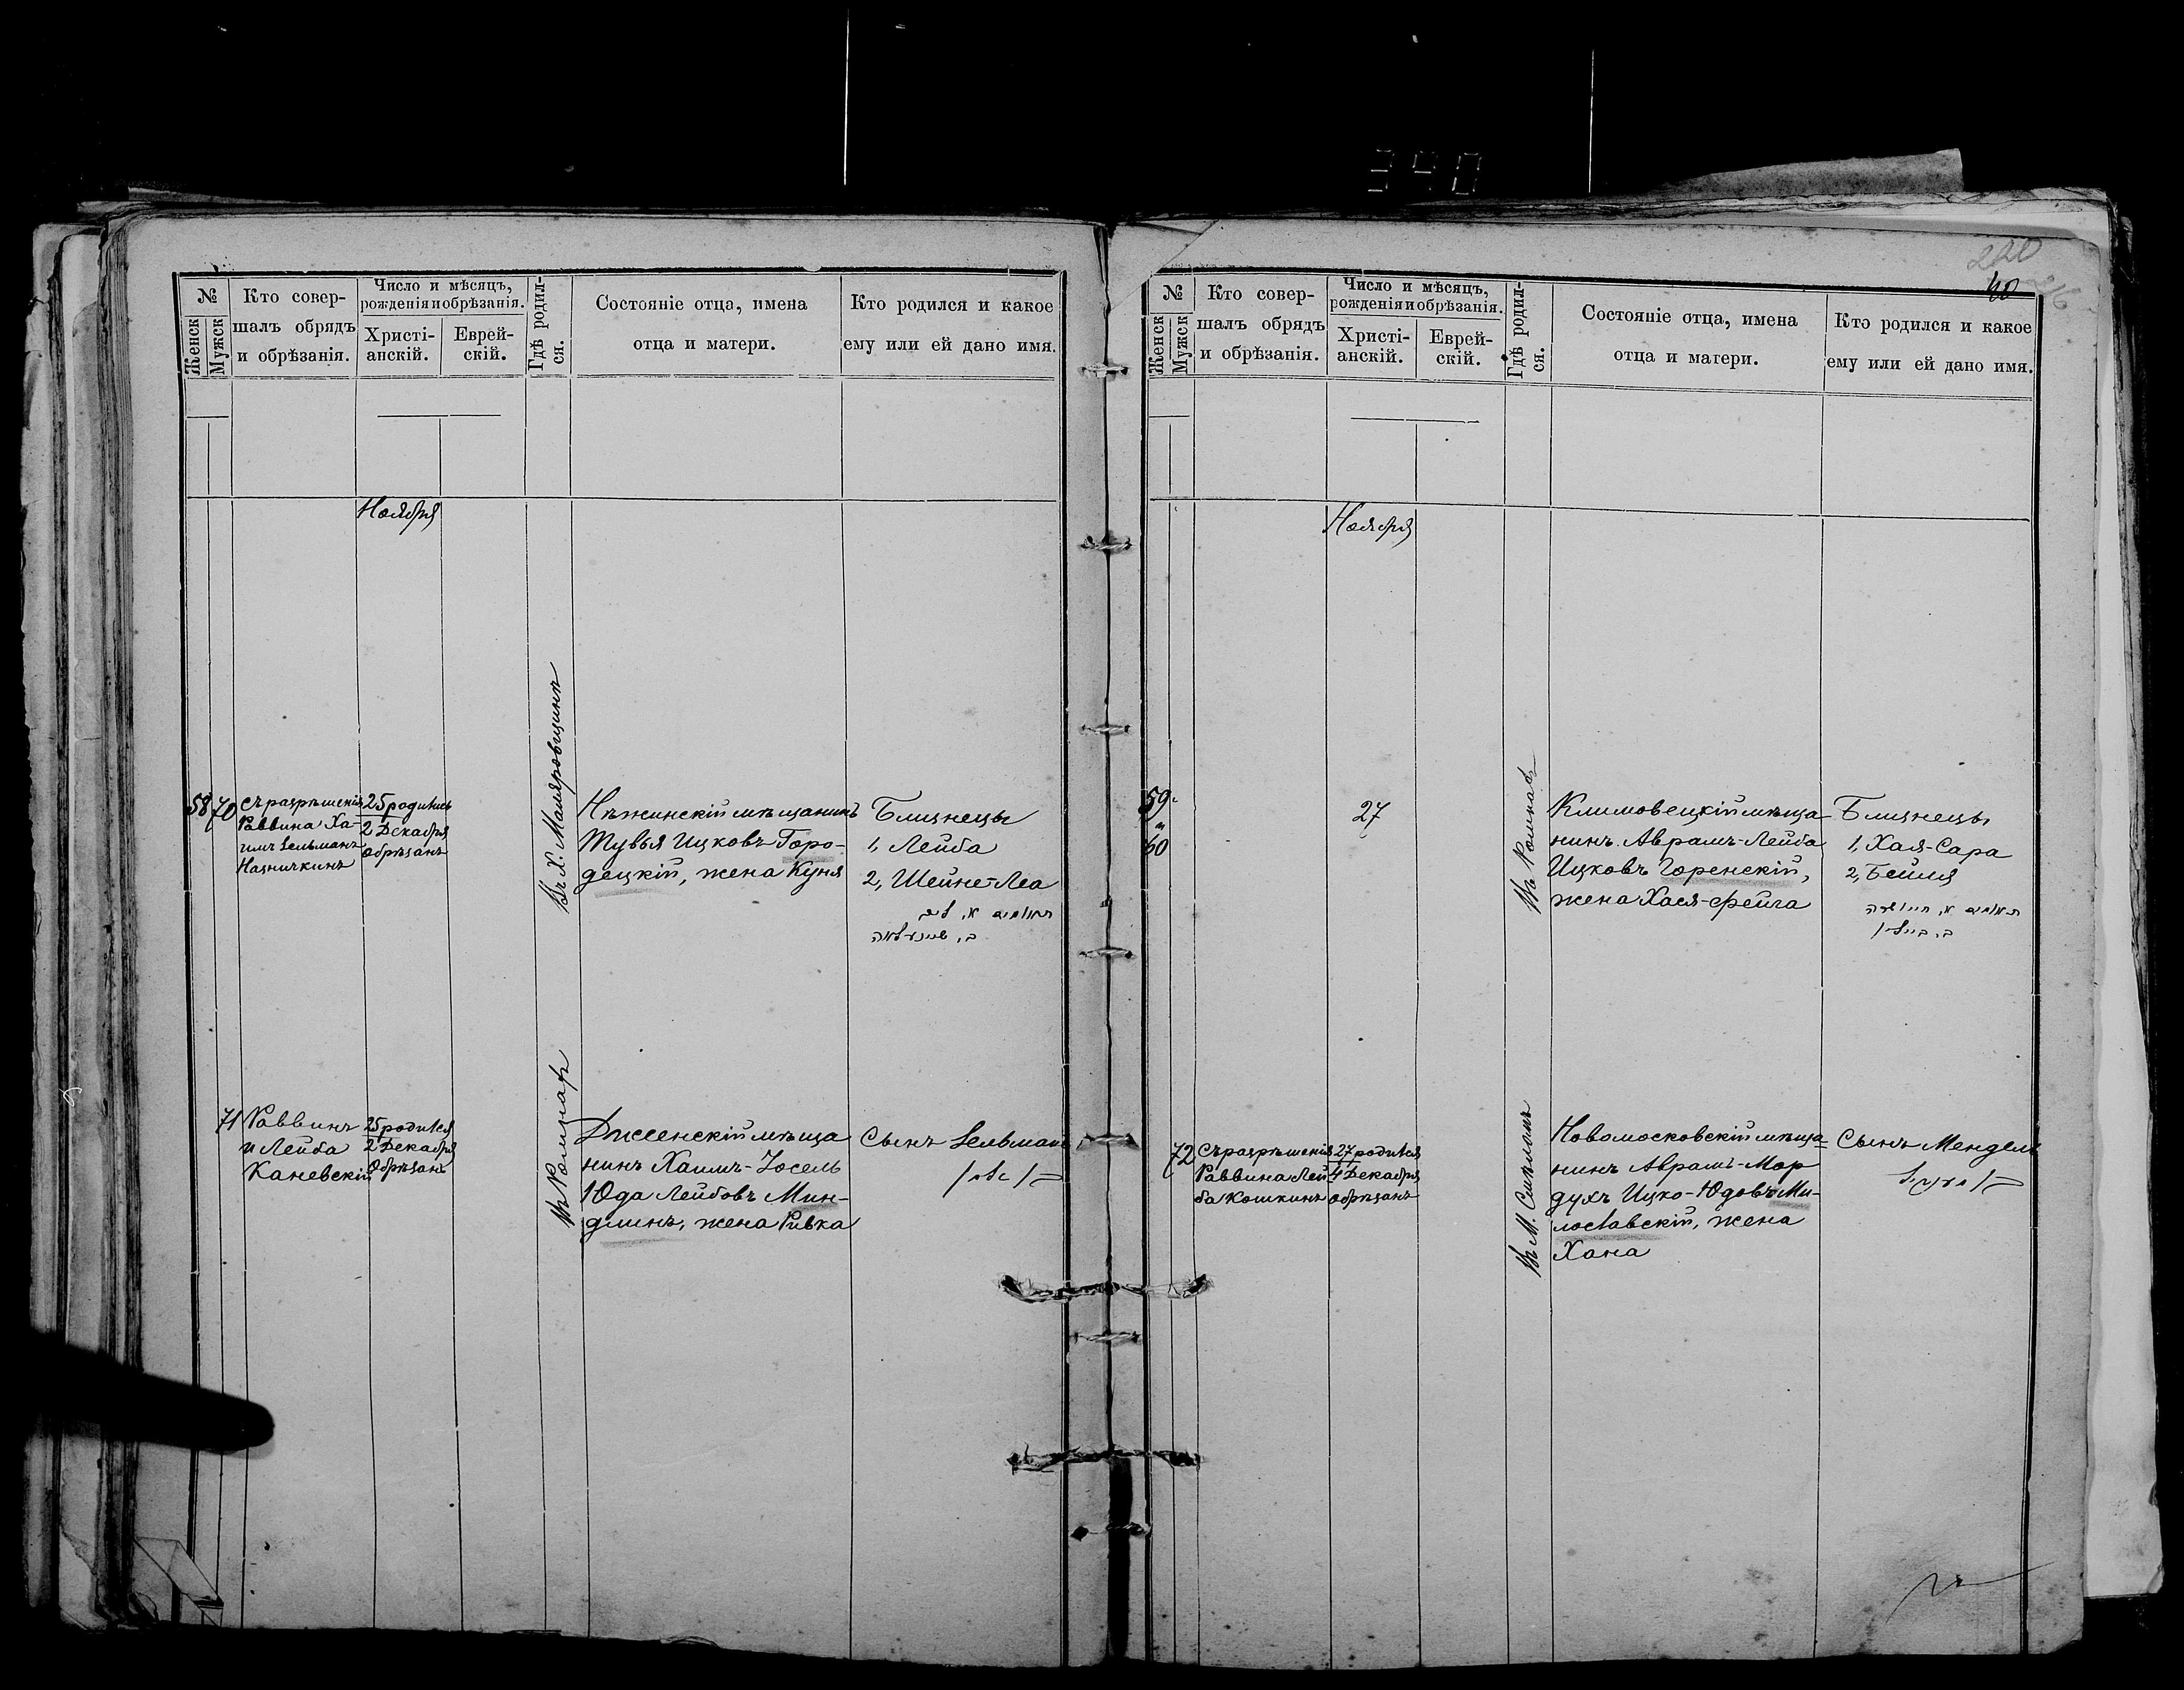 390
220
40
№
Женск
Мужск
Кто совер-
шалъ обрядъ
и обрѣзанія.
Число и мѣсяцъ,
рожденія и обрѣзанія.
Христі-
анскій.
Еврей-
скій.
Гдѣ родил-
ся.
Состояніе отца, имена
отца и матери.
Кто родился и какое
ему или ей дано имя.
Ноября
58
70
съ разрѣшенія
Раввина Ха-
имъ Зельманъ
25 родились
2 Декабря
обрѣзанъ
Въ Х.
Нѣжинскій мѣщанинъ
Тувья Ицковъ Горо-
децкій, жена Куня
Близнецы
1, Лейба
2, Шейне-Леа
71
Раввинъ
и Лейба
Каневскій
25 родился
2 Декабря
Обрѣзанъ
Въ
Дисенскій мѣща
нинъ Хаимъ-Іосель
Юда Лейбовъ Мин-
длинъ, жена Ривка
Сынъ Зельманъ
זלמן
№
Женск
Мужск
Кто совер-
шалъ обрядъ
и обрѣзанія.
Число и мѣсяцъ,
рожденія и обрѣзанія.
Христі-
анскій.
Еврей-
скій.
Гдѣ родил-
ся.
Состояніе отца, имена
отца и матери.
Кто родился и какое
ему или ей дано имя.
Ноября
59
"
60
27
Въ Ромнахъ
Климовецкій мѣща
нинъ Авраамъ-Лейба
Ицковъ Горенскій,
жена Хася-Фейга
Близнецы
1, Хая-Сара
2, Бейля
72
съ разрѣшенія
Раввина Лей
ба Кошкинъ
27 родился
4 Декабря
обрѣзанъ
Въ М. Смѣломъ
Новомосковскій мѣща
нинъ Авраамъ-Мор
духъ Ицко-Юдовъ Ми-
лославскій, жена
Хана
Сынъ Мендель